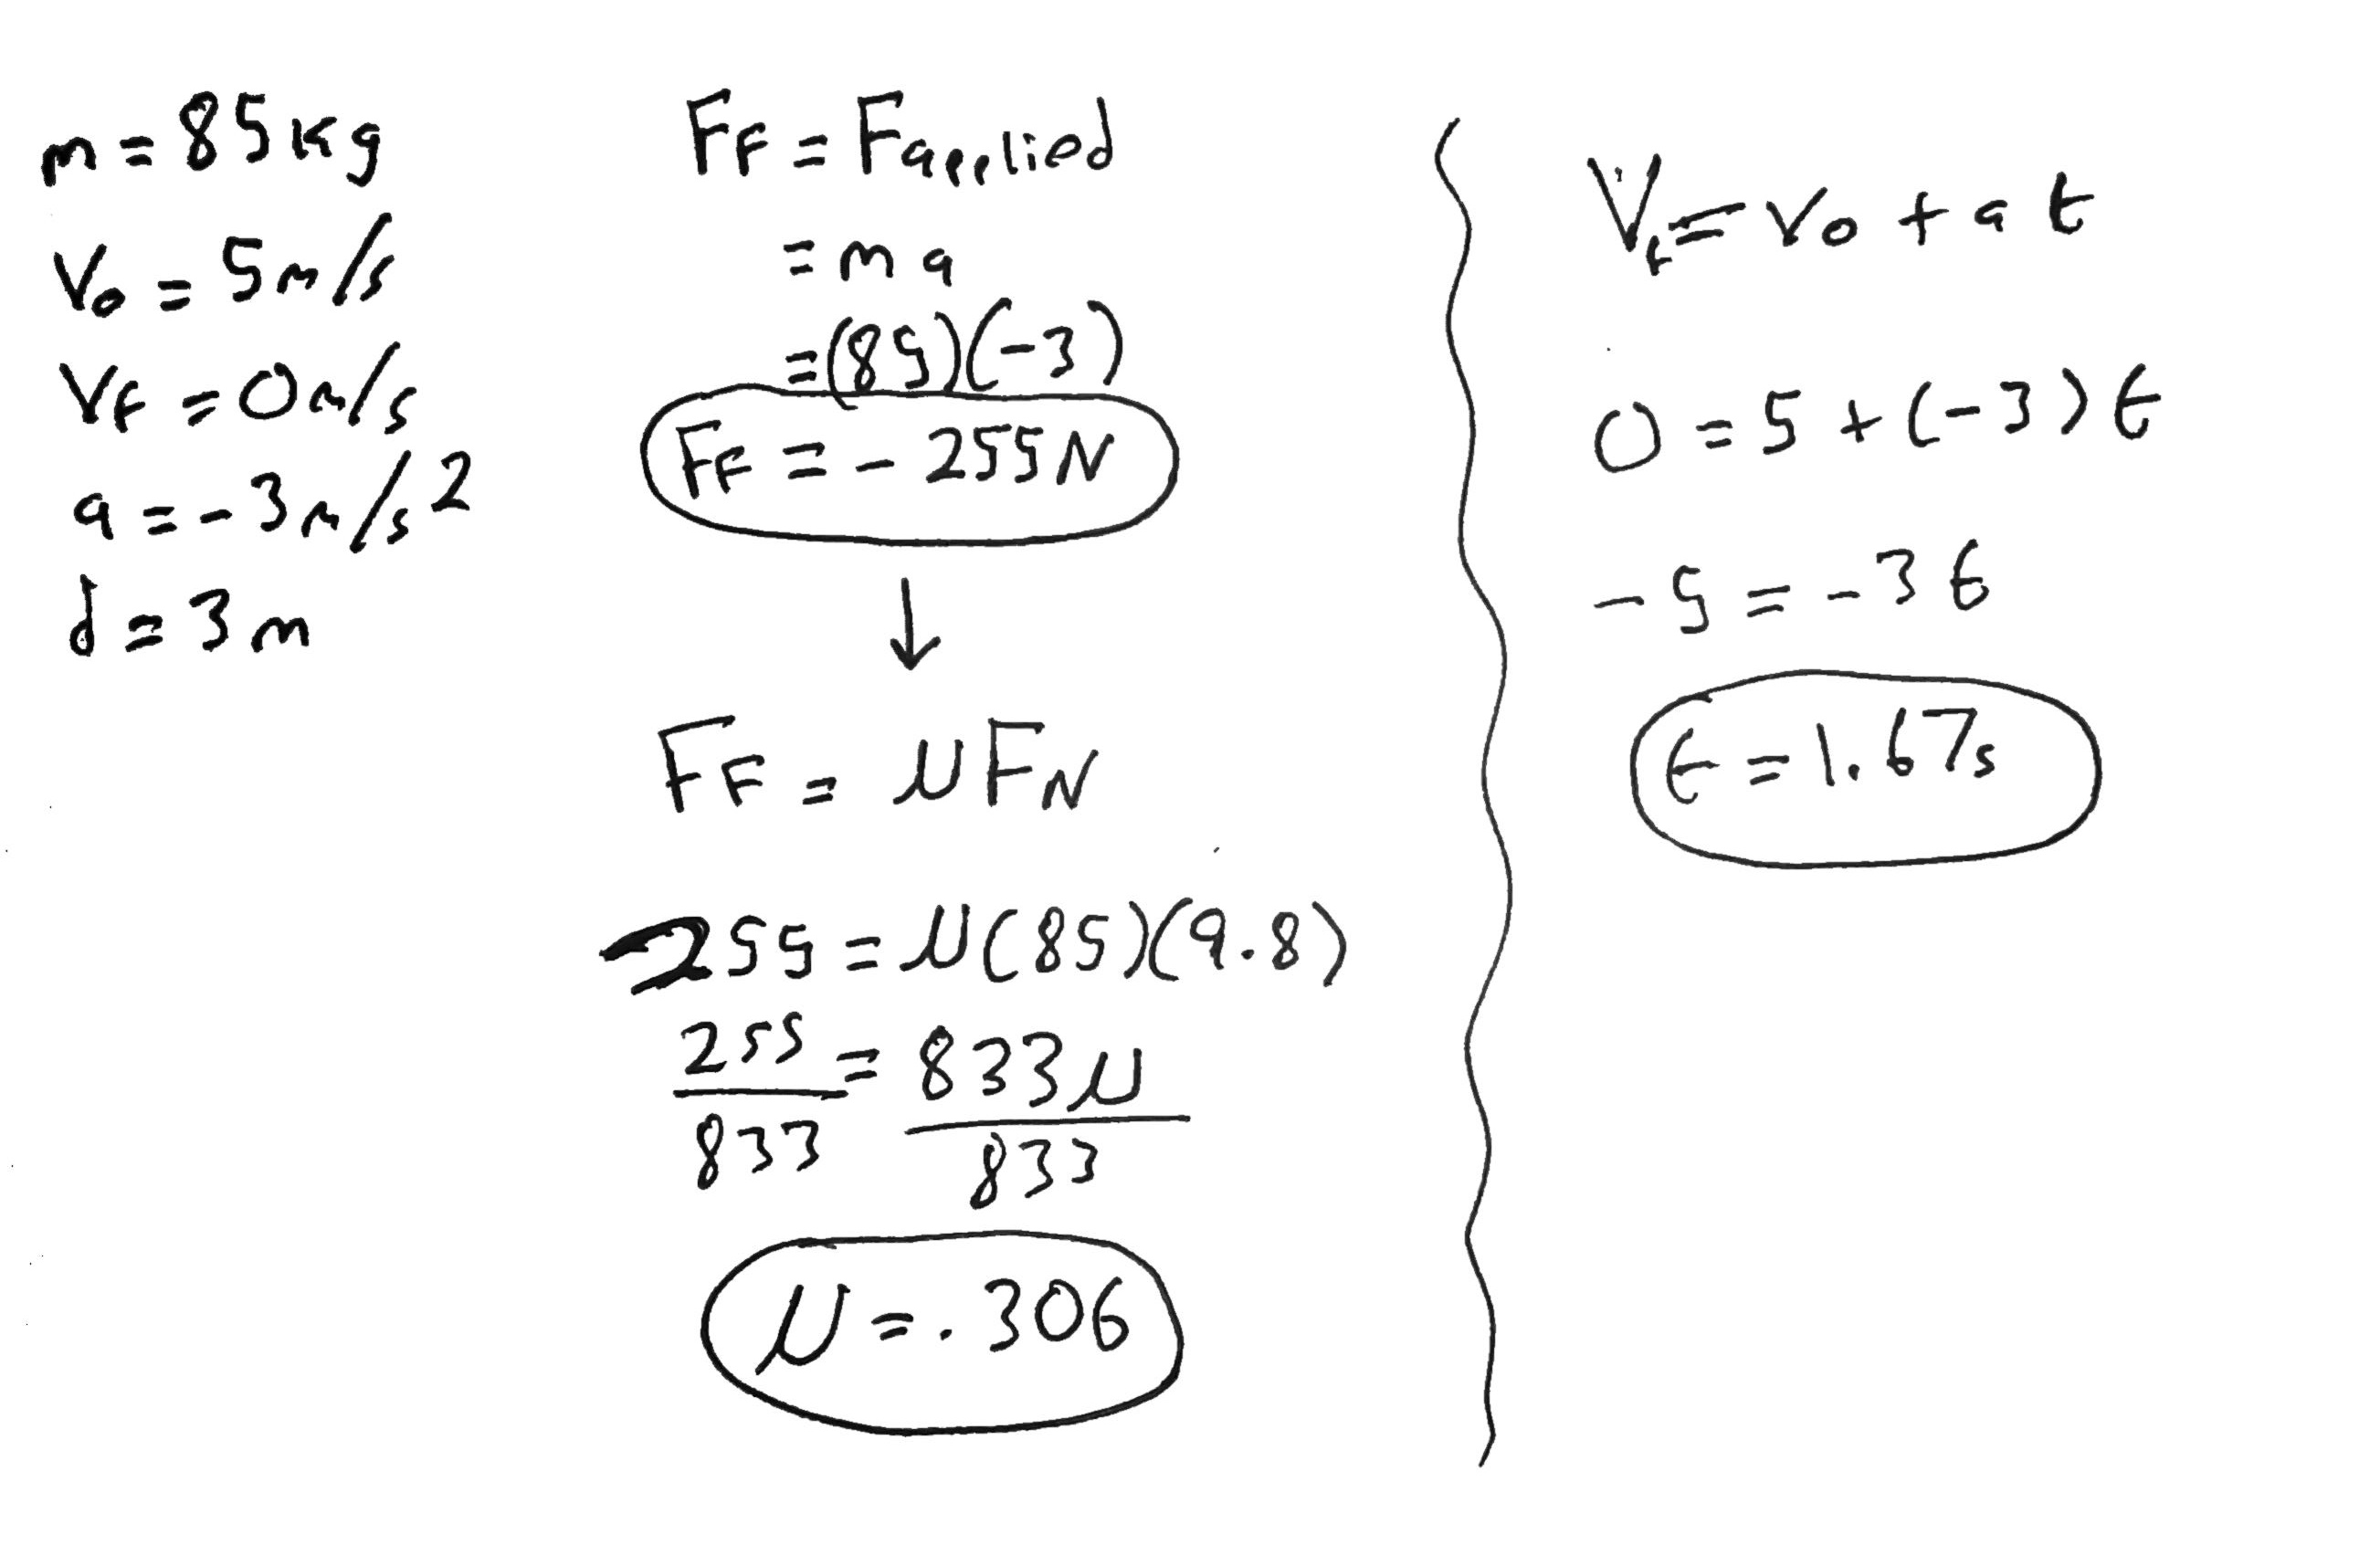 m = 85 kg
V₀ = 5 m/s
VF = 0 m/s
a = -3 m/s²
d = 3 m
FF = Fapplied
= ma
= (85)(-3)
FF = - 255 N
↓
FF = μFN
255 = μ(85)(9.8)
255 = 833μ
833 833
μ = .306
Vf = v₀ + at
0 = 5 + (-3)t
-5 = -3t
t = 1.67s